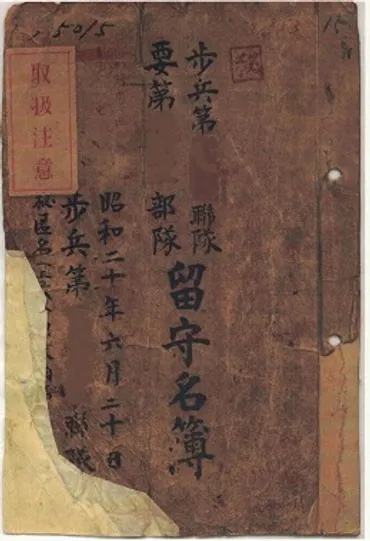 15015
15
取扱注意
歩兵第 聯隊
要第 部隊
留守名簿
昭和二十年六月二十日
歩兵第 聯隊